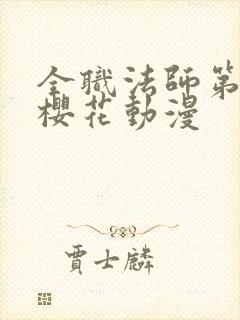 全職法師第
櫻花動漫
賈士麟